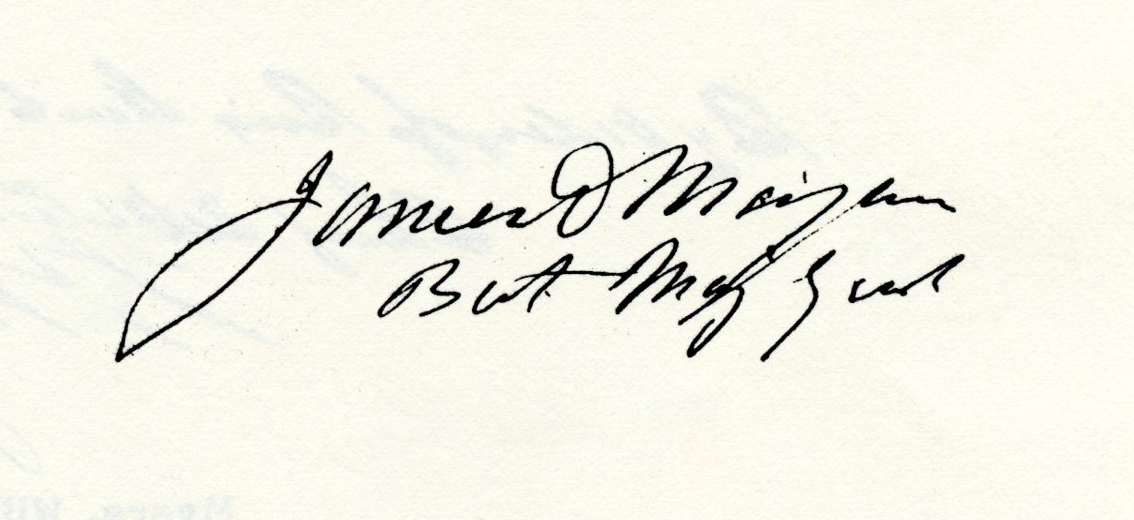 James D Morgan
Bvt Maj Genl